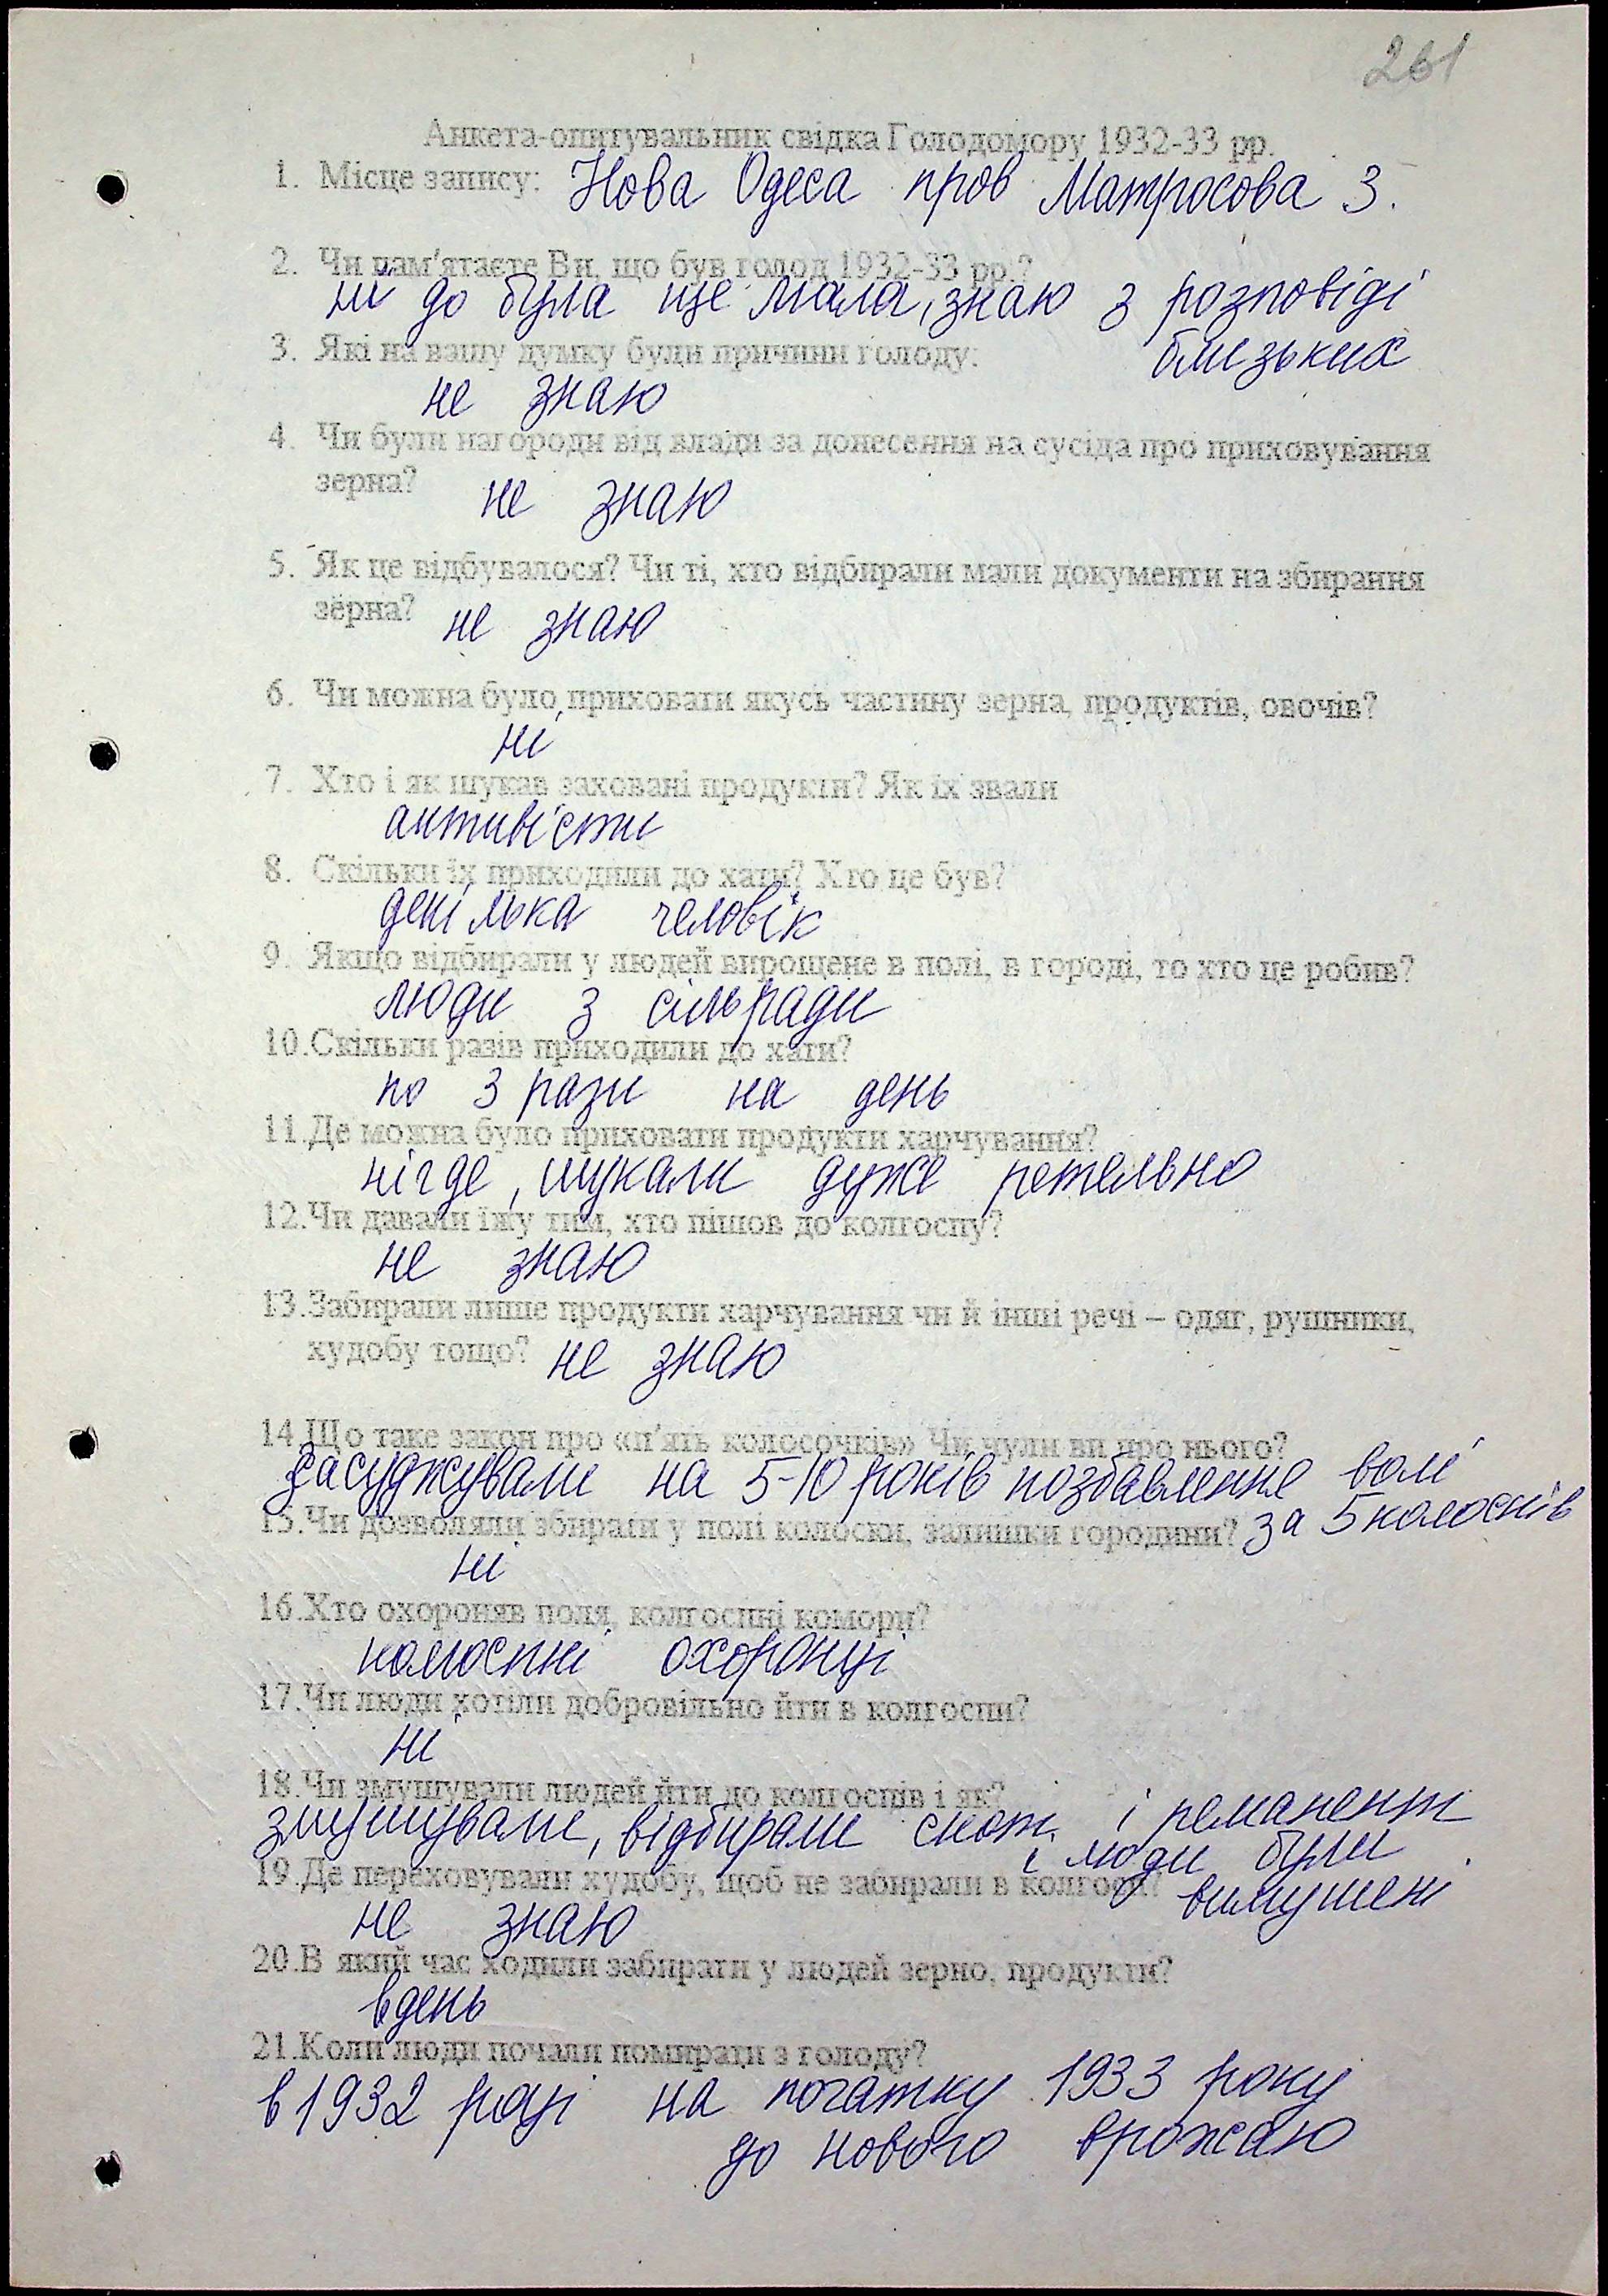 261
Анкета-опитувальник свідка Голодомору 1932-33 рр.
1. Місце запису: Нова Одеса пров Матросова 3.
2. Чи пам'ятаєте Ви, що був голод 1932-33 рр.?
ні до була ще мала, знаю з розповіді
близьких
3. Які на вашу думку були причини голоду:
не знаю
4. Чи були нагороди від влади за донесення на сусіда про приховування
зерна? не знаю
5. Як це відбувалося? Чи ті, хто відбирали мали документи на збирання
зерна? не знаю
6. Чи можна було приховати якусь частину зерна, продуктів, овочів?
ні
7. Хто і як шукав заховані продукти? Як їх звали
активісти
8. Скільки їх приходили до хати? Хто це був?
декілька человік
9. Якщо відбирали у людей вирощене в полі, в городі, то хто це робив?
люди з сільради
10.Скільки разів приходили до хати?
по 3 рази на день
11.Де можна було приховати продукти харчування?
нігде, шукали дуже ретельно
12.Чи давали їжу тим, хто пішов до колгоспу?
не знаю
13.Забирали лише продукти харчування чи й інші речі – одяг, рушники,
худобу тощо? не знаю
14.Що таке закон про «п'ять колосочків» Чи чули ви про нього?
засуджували на 5-10 років позбавлення волі
за 5 колосків
15.Чи дозволяли збирати у полі колоски, залишки городини?
ні
16.Хто охороняв поля, колгоспні комори?
колгоспні охоронці
17.Чи люди хотіли добровільно йти в колгоспи?
ні
18.Чи змушували людей йти до колгоспів і як?
змушували, відбирали скот і реманент
і люди були
вимушені
19.Де переховували худобу, щоб не забирали в колгосп?
не знаю
20.В який час ходили забирати у людей зерно, продукти?
вдень
21.Коли люди почали помирати з голоду?
в 1932 році на початку 1933 року
до нового врожаю